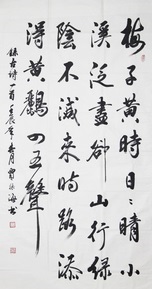 梅子黄時日日晴小
溪泛盡卻山行緑
陰不減來時路添
得黄鸝四五聲
録古詩一首壬辰年春月